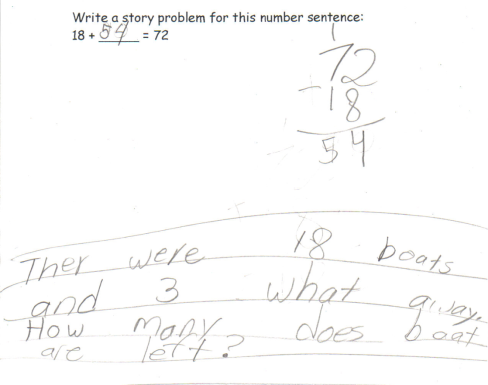 Write a story problem for this number sentence:
18 + 54 = 72
1
72
-18
54
Ther were 18 boats
and 3 what away.
How many does boat
are left?